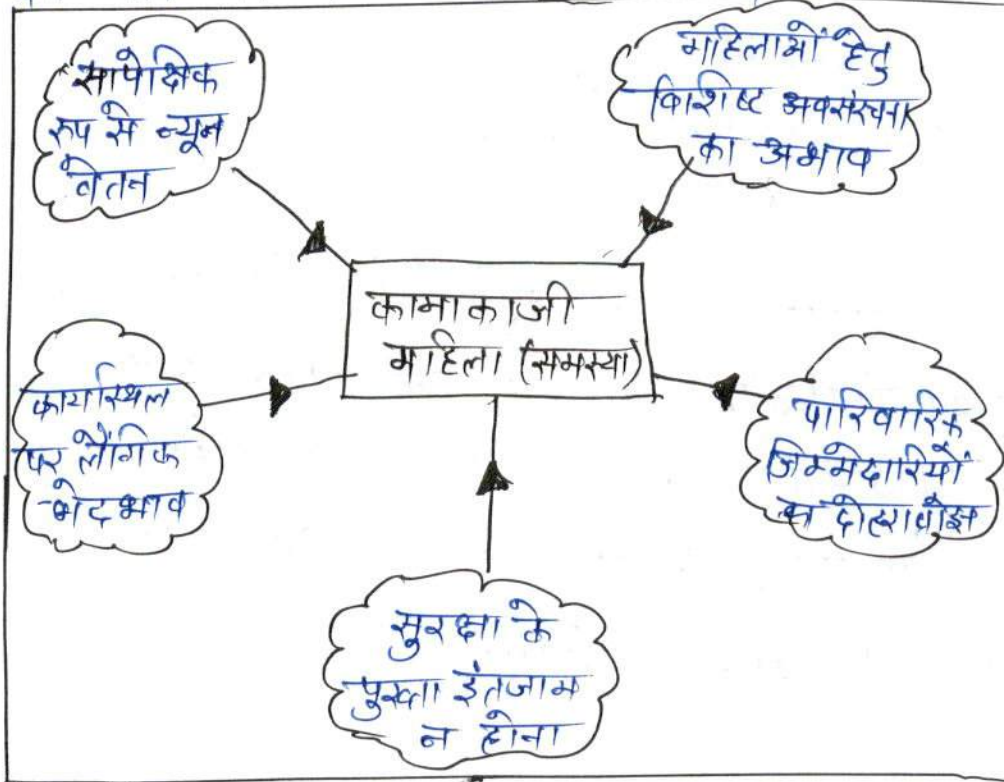 सापेक्षिक
रूप से न्यून
वेतन
महिलाओं हेतु
विशिष्ट अवसंरचना
का अभाव
कामाकाजी
महिला (समस्या)
कार्यस्थल
पर लैंगिक
भेदभाव
पारिवारिक
जिम्मेदारियों
का दोहराबोझ
सुरक्षा के
पुख्ता इंतजाम
न होना